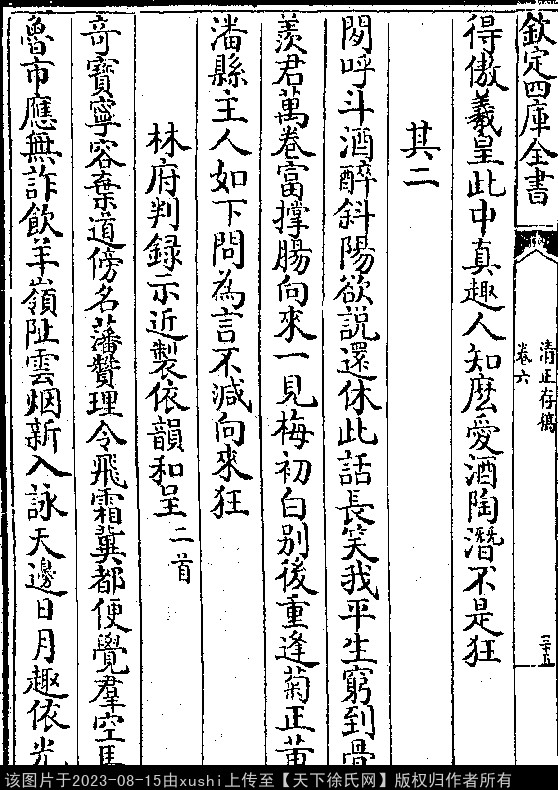 欽定四庫全書
清正存稿
卷六
三十五
得傲羲皇此中真趣人知麽愛酒陶潛不是狂
其二
閒呼斗酒醉斜陽欲說還休此話長笑我平生窮到骨
羨君萬卷富撑腸向來一見梅初白别後重逢菊正黄
潘縣主人如下問為言不減向來狂
林府判錄示近製依韻和呈二首
竒寳寧容棄道傍名藩贊理令飛霜冀都便覺羣空馬
魯市應無詐飲羊嶺阯雲烟新入詠天邊日月趣依光
该图片于2023-08-15由xushi上传至【天下徐氏网】版权归作者所有